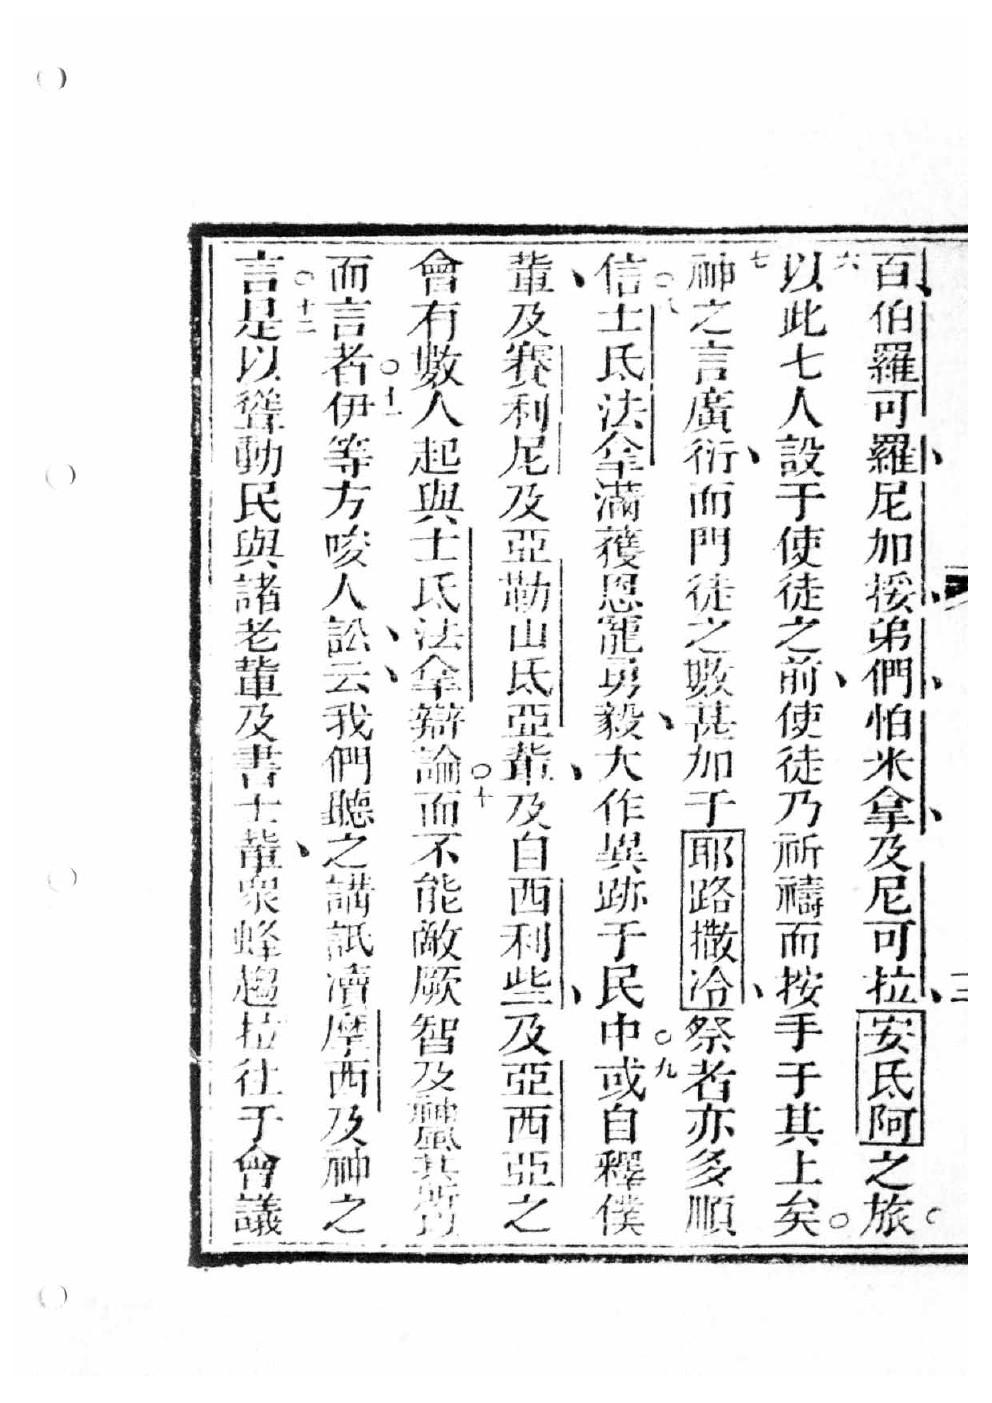 百伯羅可羅尼加挼弟們怕米拿及尼可拉安氐阿之旅
六以此七人設于使徒之前使徒乃祈禱而按手于其上矣
七神之言廣衍而門徒之數甚加于耶路撒冷祭者亦多順
信○八士氐法拿滿獲恩寵勇毅大作異跡于民中○九或自釋僕
輩及賽利尼及亞勒山氐亞輩及自西利些及亞西亞之
會有數人起與士氐法拿辯論○十而不能敵厥智及神風其所
而言者○十一伊等方唆人訟云我們聽之講詆瀆摩西及神之
言○十二是以聳動民與諸老輩及書士輩衆蜂趨拉往于會議